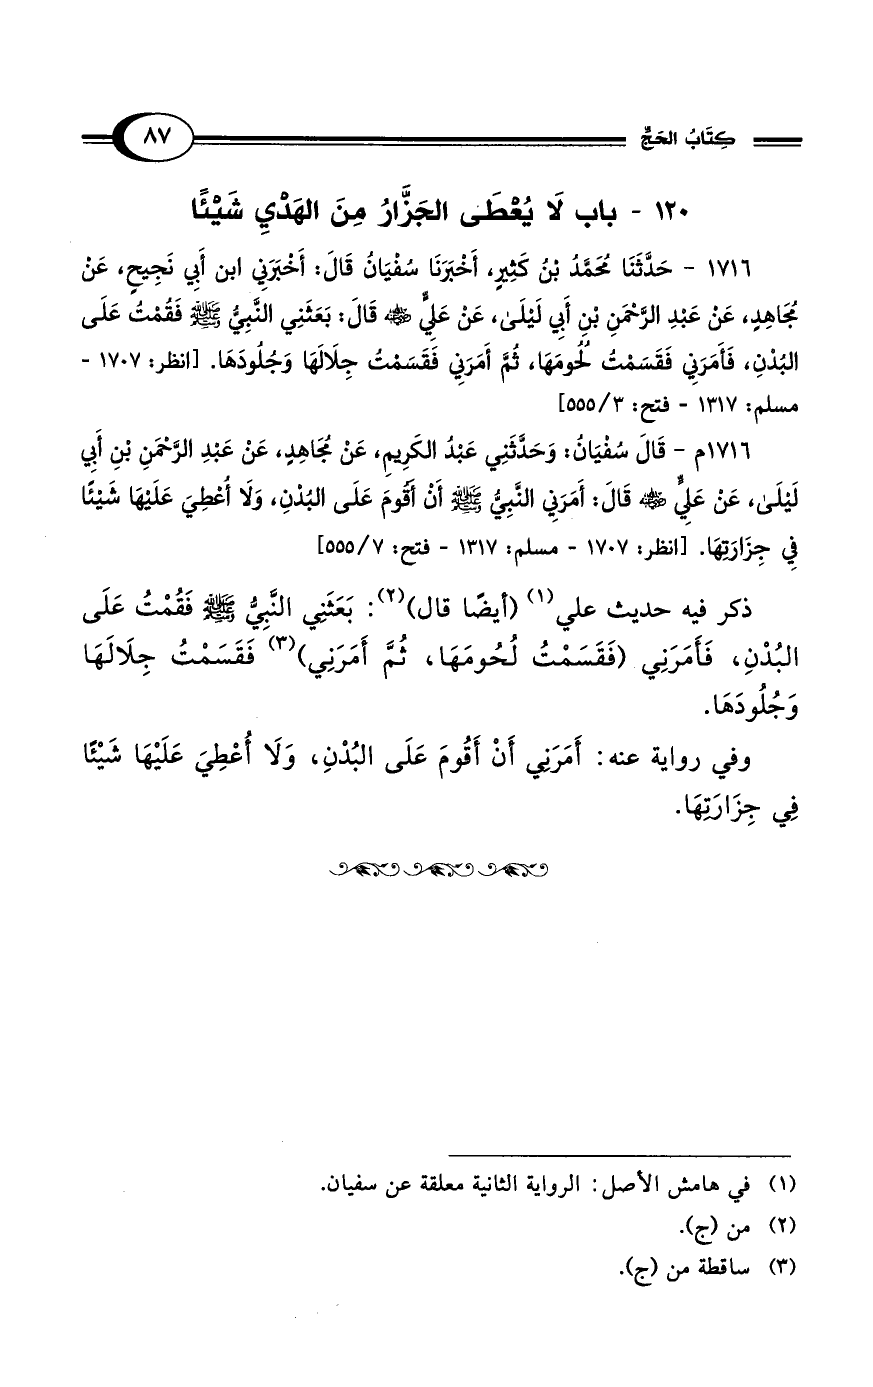 كِتَابُ الحَجِّ ٨٧
١٢٠ - باب لَا يُعْطَى الجَزَّارُ مِنَ الهَدْيِ شَيْئًا
١٧١٦ - حَدَّثَنَا مُحَمَّدُ بْنُ كَثِيرٍ، أَخْبَرَنَا سُفْيَانُ قَالَ: أَخْبَرَنِي ابن أَبِي نَجِيحٍ، عَنْ
مُجَاهِدٍ، عَنْ عَبْدِ الرَّحْمَنِ بْنِ أَبِي لَيْلَىٰ، عَنْ عَلِيٍّ رضي الله عنه قَالَ: بَعَثَنِي النَّبِيُّ ﷺ فَقُمْتُ عَلَى
البُدْنِ، فَأَمَرَنِي فَقَسَمْتُ لُحُومَهَا، ثُمَّ أَمَرَنِي فَقَسَمْتُ جِلَالَهَا وَجُلُودَهَا. [انظر: ١٧٠٧ -
مسلم: ١٣١٧ - فتح: ٣/ ٥٥٥]
١٧١٦م - قَالَ سُفْيَانُ: وَحَدَّثَنِي عَبْدُ الكَرِيمِ، عَنْ مُجَاهِدٍ، عَنْ عَبْدِ الرَّحْمَنِ بْنِ أَبِي
لَيْلَىٰ، عَنْ عَلِيٍّ رضي الله عنه قَالَ: أَمَرَنِي النَّبِيُّ ﷺ أَنْ أَقُومَ عَلَى البُدْنِ، وَلَا أُعْطِيَ عَلَيْهَا شَيْئًا
فِي جِزَارَتِهَا. [انظر: ١٧٠٧ - مسلم: ١٣١٧ - فتح: ٧/ ٥٥٥]
ذكر فيه حديث علي(١) (أيضًا قال)(٢): بَعَثَنِي النَّبِيُّ ﷺ فَقُمْتُ عَلَى
البُدْنِ، فَأَمَرَنِي (فَقَسَمْتُ لُحُومَهَا، ثُمَّ أَمَرَنِي)(٣) فَقَسَمْتُ جِلَالَهَا
وَجُلُودَهَا.
وفي رواية عنه: أَمَرَنِي أَنْ أَقُومَ عَلَى البُدْنِ، وَلَا أُعْطِيَ عَلَيْهَا شَيْئًا
فِي جِزَارَتِهَا.
(١) في هامش الأصل: الرواية الثانية معلقة عن سفيان.
(٢) من (ج).
(٣) ساقطة من (ج).